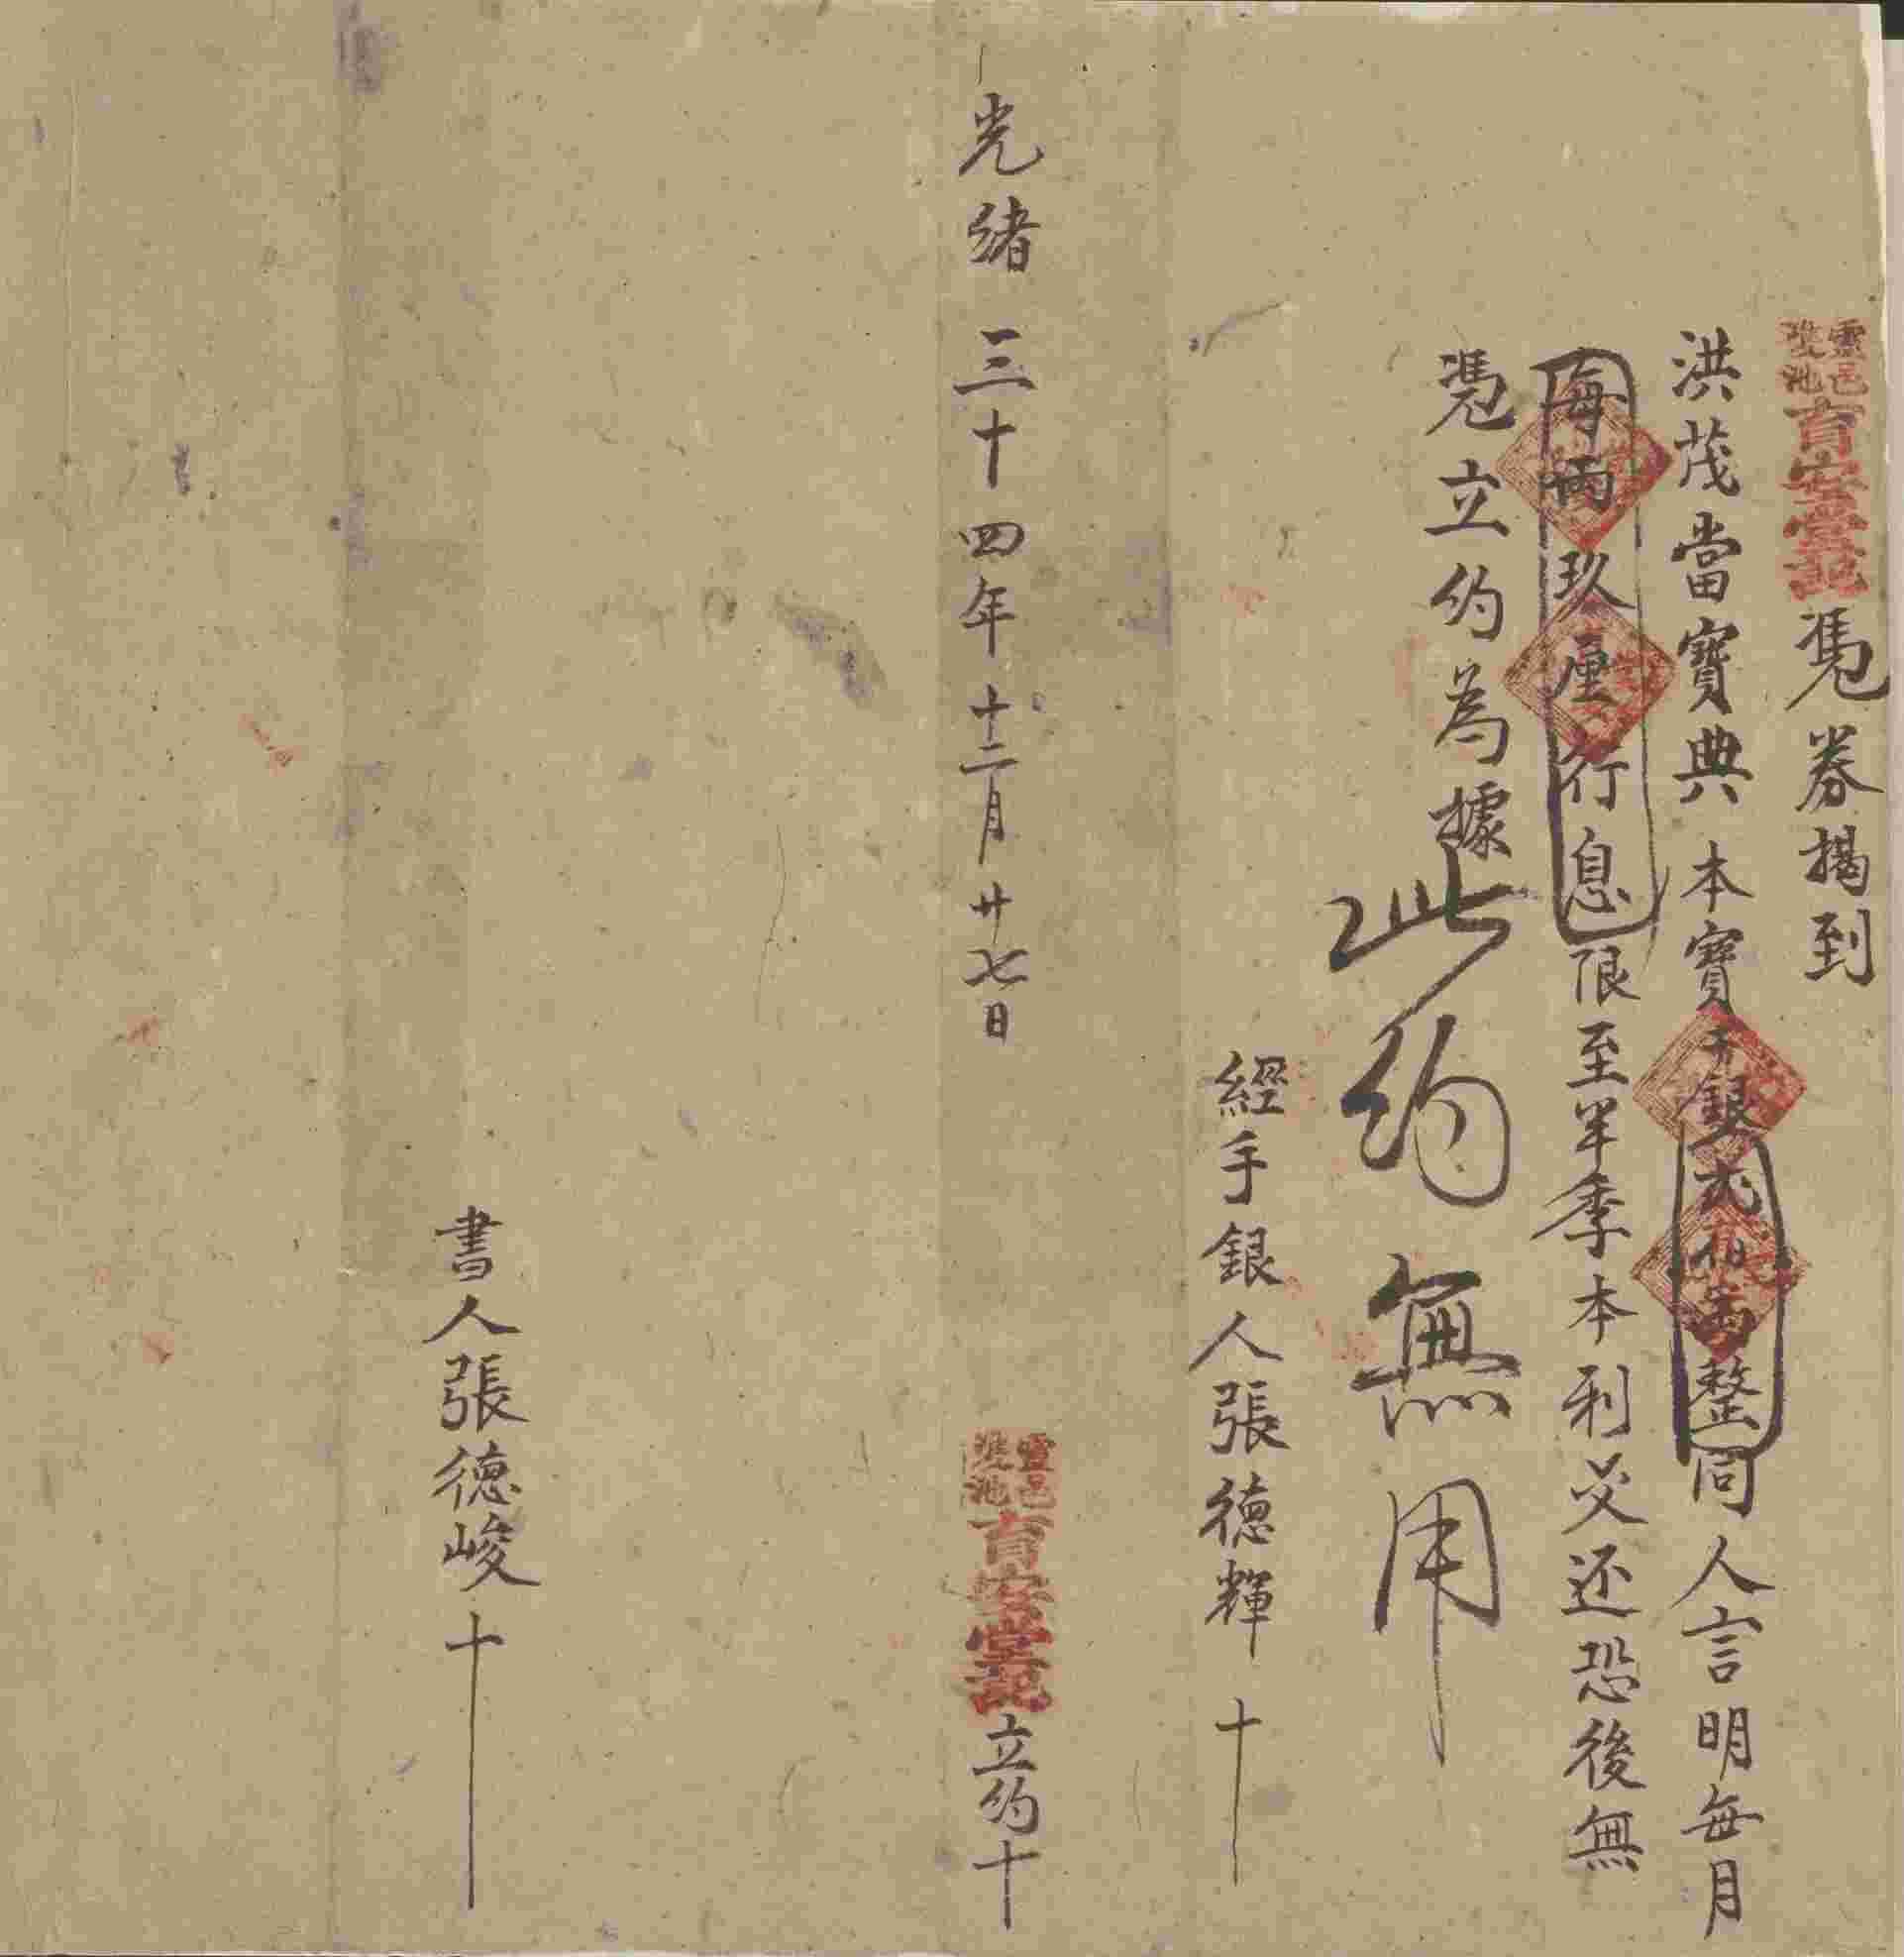 靈邑雙池育安堂記憑券揭到
洪茂當寶典本寶銀弍佰両整同人言明每月
每両玖厘行息限至半季本利交还恐後無
憑立約為據
此約無用
經手銀人張德輝十
光緒三十四年十二月廿七日靈邑雙池育安堂記立約十
書人張德峻十